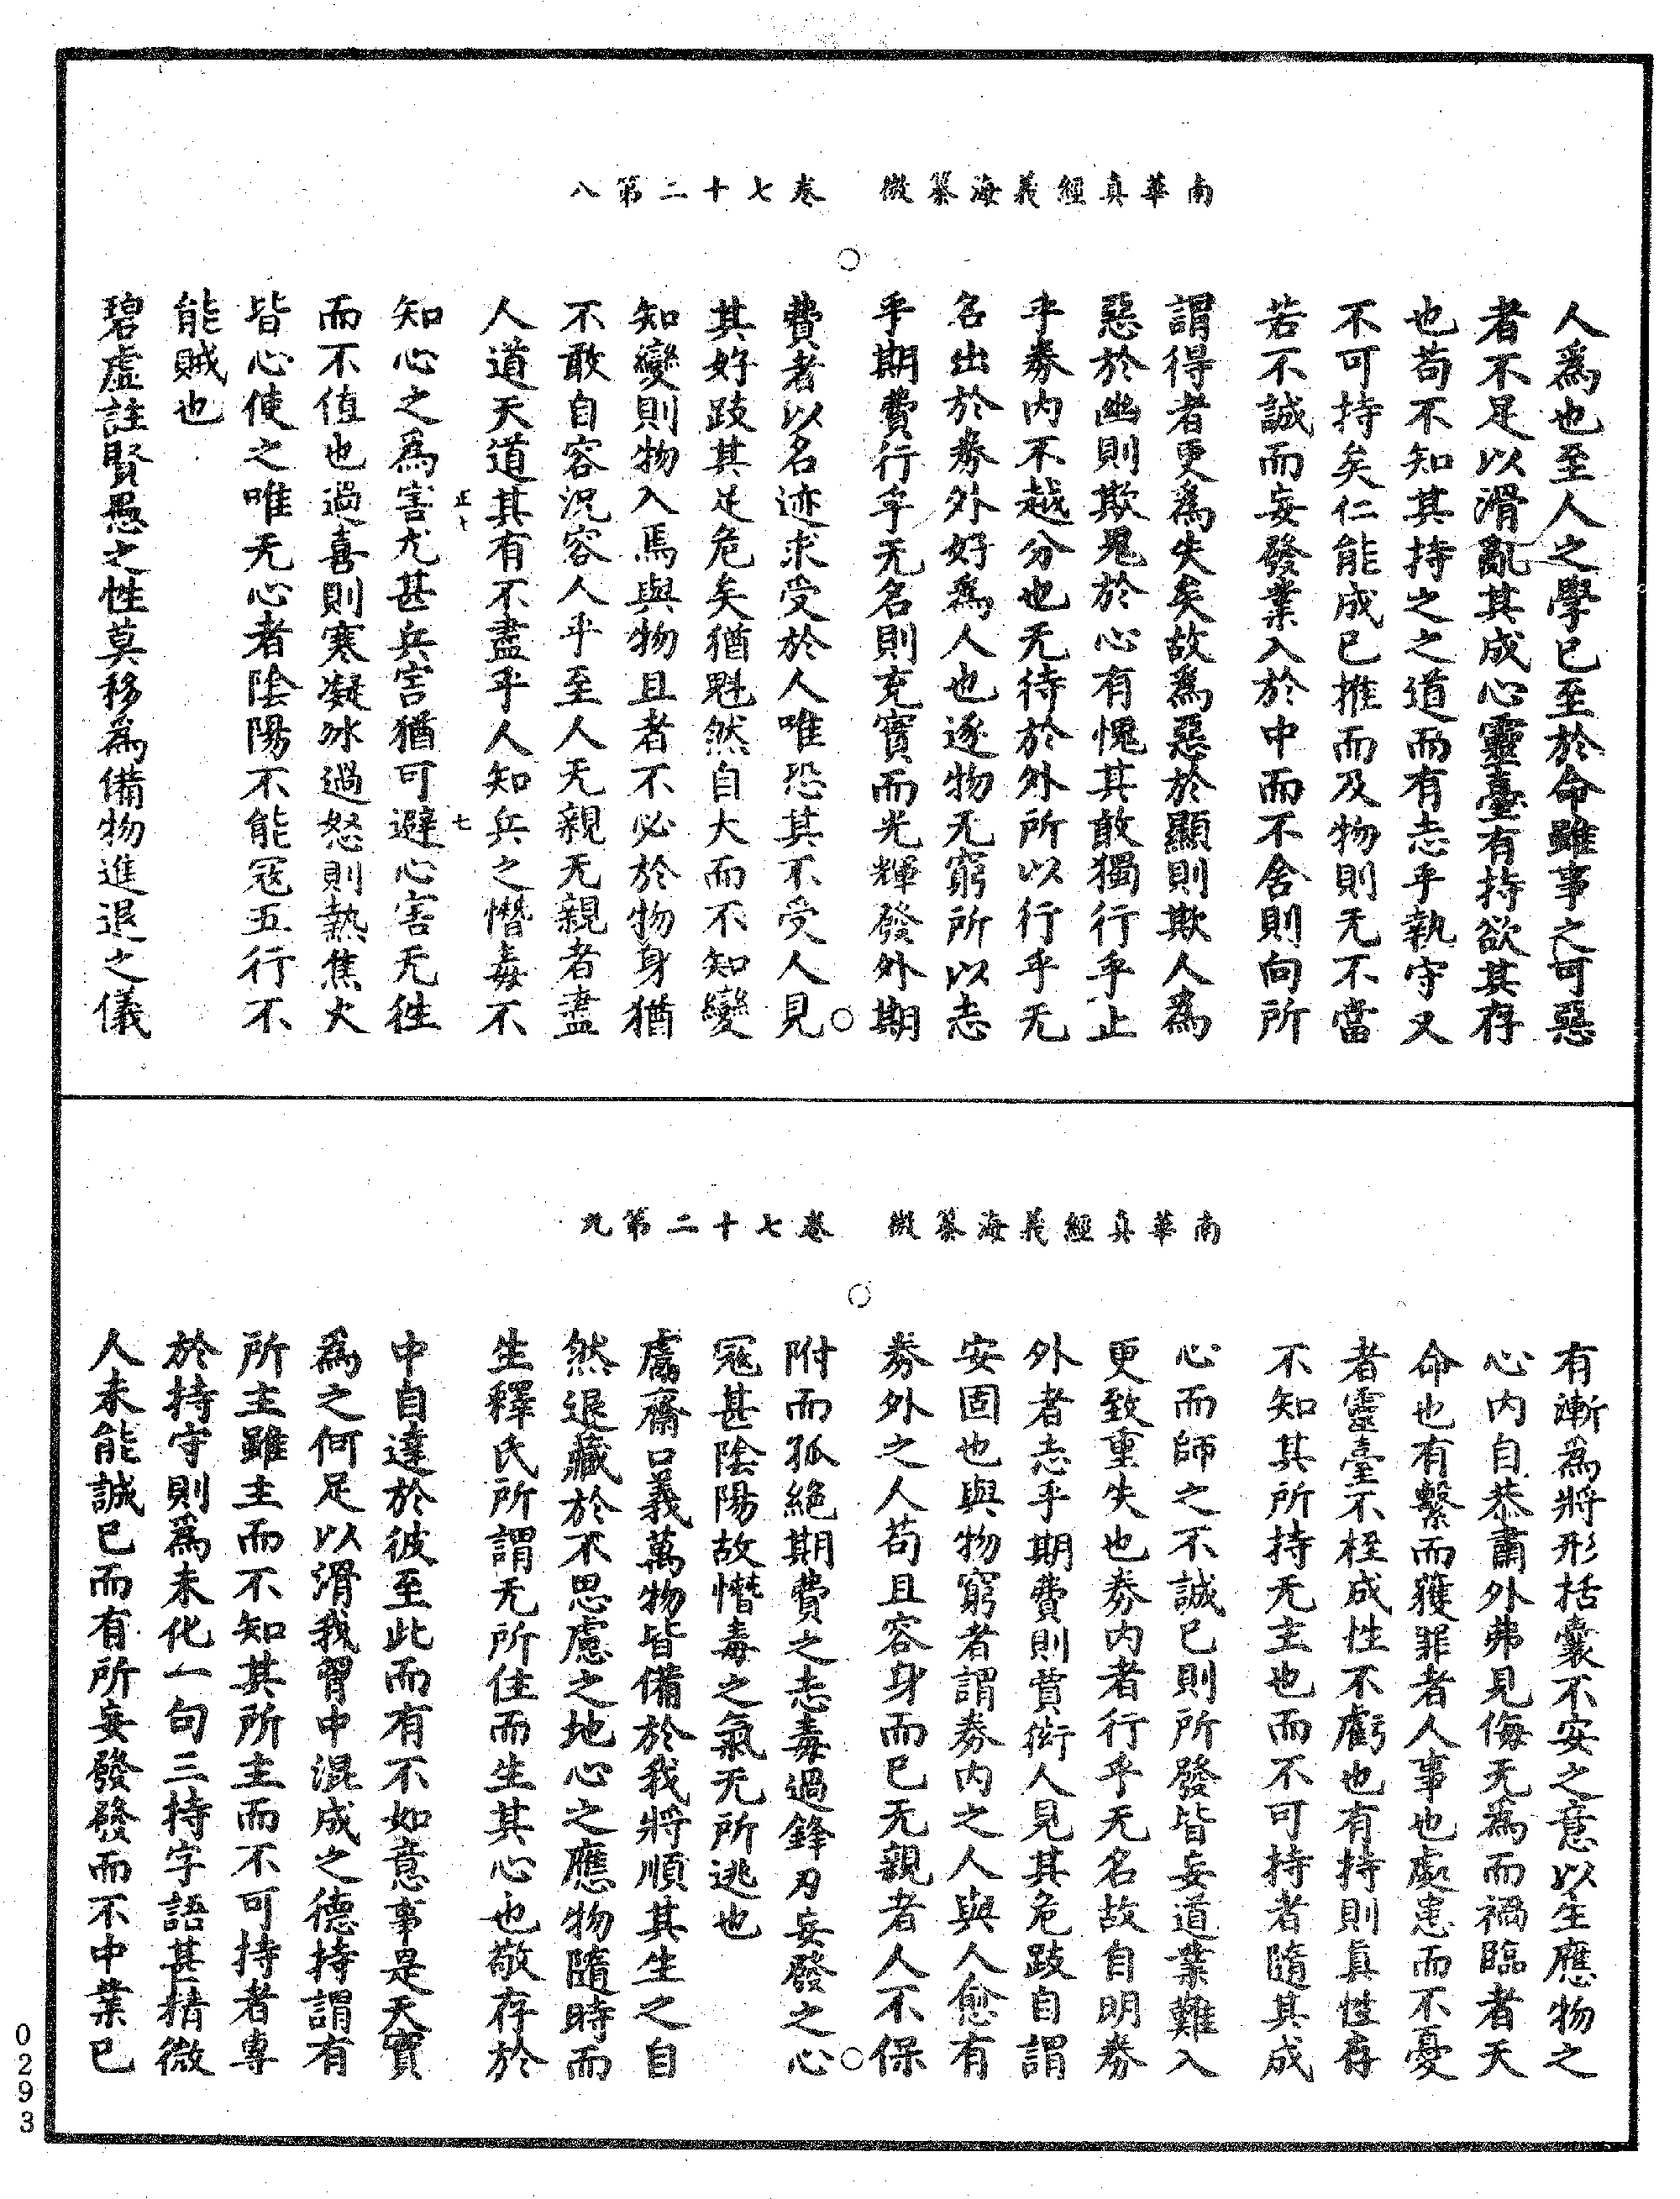 南華真經義海纂微　卷七十二第八
人爲也至人之學已至於命雖事之可惡
者不足以滑亂其成心靈臺有持欲其存
也苟不知其持之之道而有志乎執守又
不可持矣仁能成已推而及物則无不當
若不誠而妄發業入於中而不舍則向所
謂得者更爲失矣故爲惡於顯則欺人爲
惡於幽則欺鬼於心有愧其敢獨行乎止
乎券内不越分也无待於外所以行乎无
名出於券外好爲人也逐物无窮所以志
乎期費行乎无名則充實而光輝發外期
費者以名迹求受於人唯恐其不受人見
其好跂其足危矣猶魁然自大而不知變
知變則物入焉與物且者不必於物身猶
不敢自容況容人乎至人无親无親者盡
人道天道其有不盡乎人知兵之憯毒不
知心之爲害尤甚兵害猶可避心害无徃
而不值也過喜則寒凝冰過怒則熱焦火
皆心使之唯无心者陰陽不能冦五行不
能賊也
碧虛註賢愚之性莫移爲備物進退之儀
南華真經義海纂微　卷七十二第九
有漸爲將形括囊不安之意以生應物之
心内自恭肅外弗見侮无爲而禍臨者天
命也有繫而獲罪者人事也處患而不憂
者靈臺不桎成性不虧也有持則真性存
不知其所持无主也而不可持者隨其成
心而師之不誠已則所發皆妄道業難入
更致重失也券内者行乎无名故自明券
外者志乎期費則賣衒人見其危跂自謂
安固也與物窮者謂券内之人與人愈有
券外之人苟且容身而已无親者人不保
附而孤絶期費之志毒過鋒刃妄發之心
冦甚陰陽故憯毒之氣无所逃也
鬳齋口義萬物皆備於我將順其生之自
然退藏於不思慮之地心之應物隨時而
生釋氏所謂无所住而生其心也敬存於
中自達於彼至此而有不如意事是天實
爲之何足以滑我胷中混成之德持謂有
所主雖主而不知其所主而不可持者專
於持守則爲未化一句三持字語甚精微
人未能誠已而有所妄發發而不中業已
0293